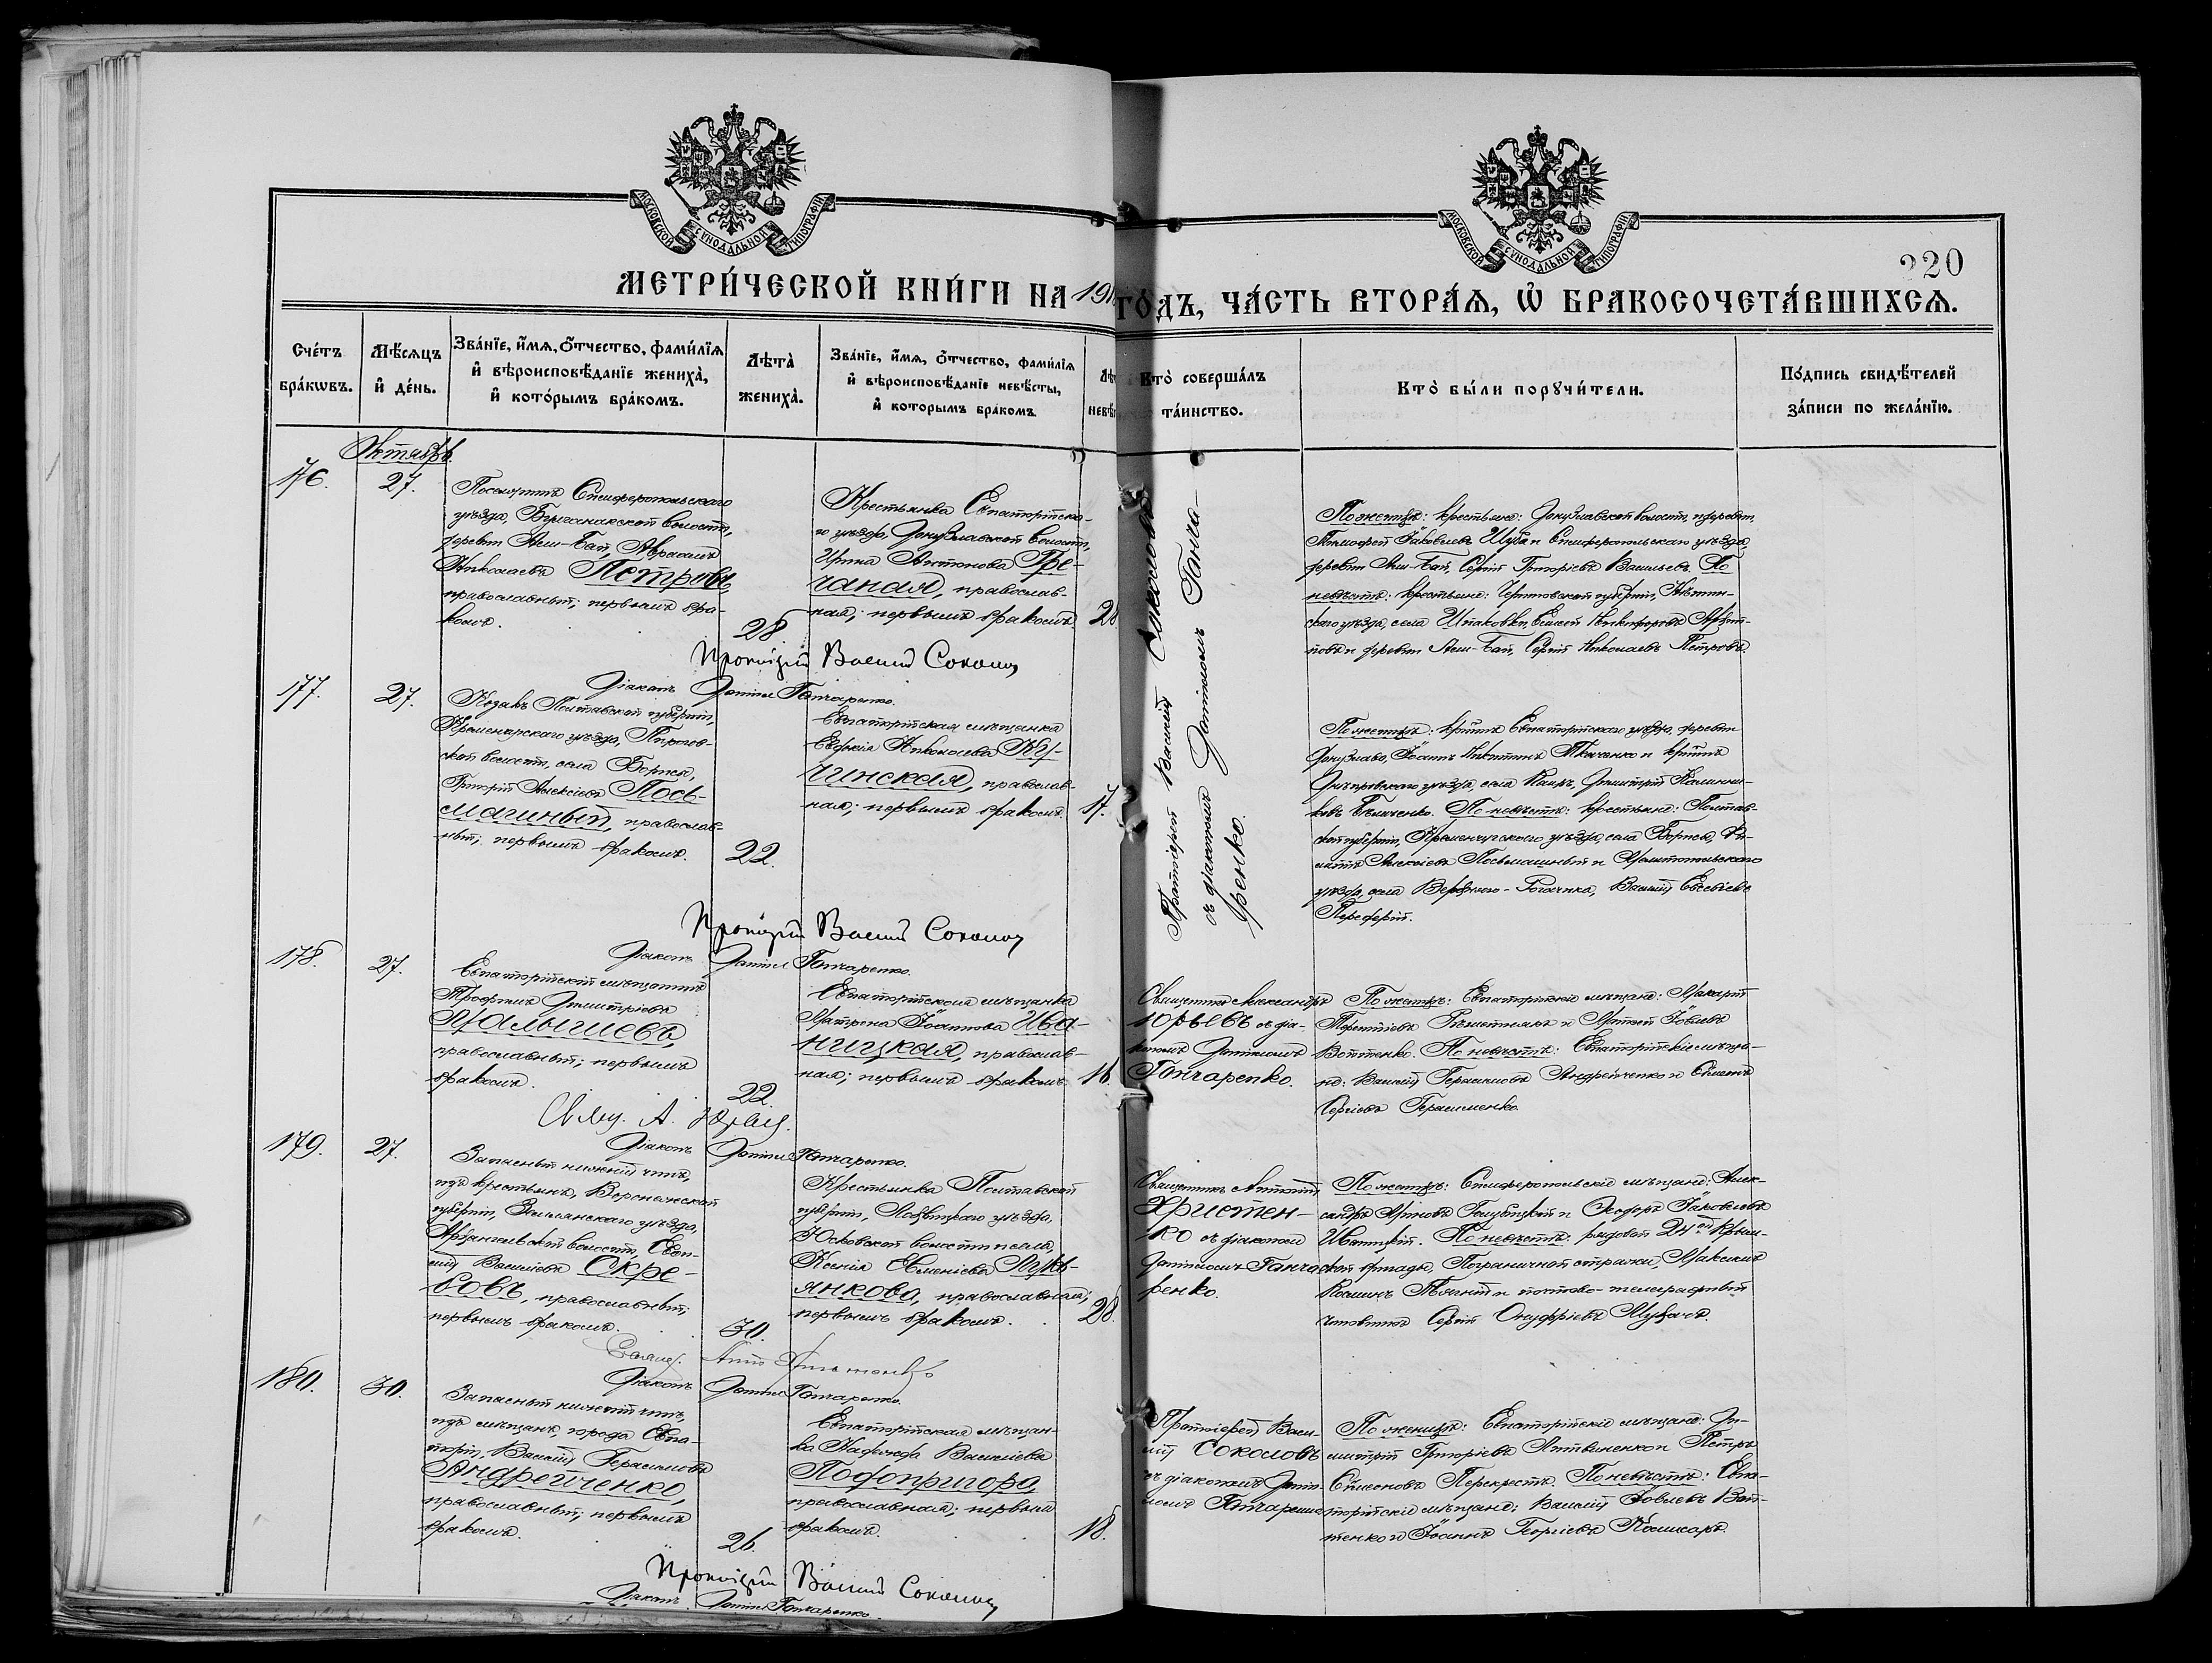 МОСКОВСКОЙ СѴНОДАЛЬНОЙ ТИПОГРАФІИ
МОСКОВСКОЙ СѴНОДАЛЬНОЙ ТИПОГРАФІИ
220
МЕТРИ́ЧЕСКОЙ КНИ́ГИ НА 191
ГО́ДЪ, ЧА́СТЬ ВТОРА́Я, Ѡ БРАКОСОЧЕТА́ВШИХСЯ.
Сче́тъ бра́кѡвъ.
Мѣ́сяцъ и҆ де́нь.
Зва́нїе, и҆́мя, о҆́тчество, фами́лїя
и҆ вѣроисповѣ́данїе жениха̀,
и҆ кото́рымъ бра́комъ.
Лѣта̀ жениха̀.
Зва́нїе, и҆́мя, о҆́тчество, фами́лїя
и҆ вѣроисповѣ́данїе невѣ́сты,
и҆ которымъ бракомъ.
Кто̀ соверша́лъ та́инство.
Кто̀ бы́ли порꙋчи́тели.
По́дпись свидѣ́телей
за́писи по жела́нїю.
Октябрь.
176.
27.
Поселянинъ Симферопольскаго
уѣзда, Булганакской волости,
деревни Аш-Бай, Авраамъ
Николаевъ Петровъ,
православный; первымъ бра-
комъ.
28
Крестьянка Евпаторійска-
го уѣзда, Донузлавской волости,
Ирина Антонова Гре-
чаная, православ-
ная; первымъ бракомъ.
28
Протоіерей Василій Соколовъ
съ діакономъ Даніиломъ Ганча-
ренко.
По женихѣ: крестьяне: Донузлавской волости, и деревни,
Тимофей Іаковлевъ Шуба и Симферопольскаго уѣзда,
деревни Аш-Бай, Сергій Григоріевъ Васильевъ. По
невѣстѣ: крестьяне: Черниговской губерніи,
скаго уѣзда, села Шпаковки, Никифоровъ
повъ и деревни Аш-Бай, Сергій Николаевъ Петровъ.
Протоіерей Василій Соколовъ
Діаконъ Даніилъ Ганчаренко.
177.
27.
Козакъ Полтавской губерніи,
Кременчугскаго уѣзда, Пирогов-
ской волости, села Бориса,
Григорій Алексіевъ Пось-
машный, православ-
ный; первымъ бракомъ.
22.
Евпаторійская мѣщанка
Евдокія Николаева Ку-
чинская, православ-
ная; первымъ бракомъ.
17.
По женихѣ: кр‑нинъ Евпаторійскаго уѣзда, деревни
Донузлавъ, Іоаннъ Никитинъ Ткаченко и кр‑нинъ
Днѣпровскаго уѣзда, села Каиръ, Димитрій Калинни-
ковъ. По невѣстѣ: крестьяне: Полтав-
ской губерніи, Кременчугскаго уѣзда, села Бориса, Фи-
липпъ Алексіевъ Посьмашный и Мелитопольскаго
уѣзда, села Верхняго-Рогачика, Василій Евсевіевъ
Передерій.
Протоіерей Василій Соколовъ
Діаконъ Даніилъ Ганчаренко.
178.
27.
Евпаторійскій мѣщанинъ
Трофимъ Димитріевъ
Малышевъ,
православный; первымъ
бракомъ.
22.
Евпаторійская мѣщанка
Матрона Іоаннова Ива-
ницкая, православ-
ная; первымъ бракомъ.
16.
Священникъ Александръ
Юрьевъ съ діа-
кономъ Даніиломъ
Ганчаренко.
По женихѣ: Евпаторійскіе мѣщане: Макарій
Терентіевъ и Матѳей Іовлевъ
Войтенко. По невѣстѣ: Евпаторійскіе мѣща-
не: Василій Герасимовъ Андрейченко и Симеонъ
Сергіевъ Герасименко.
Свящ. А. Юрьевъ.
Діаконъ Даніилъ Ганчаренко.
179.
27.
Запасный нижній чинъ,
изъ крестьянъ, Воронежской
губерніи, Землянскаго уѣзда,
Архангельской волости, Евѳи-
мій Василіевъ Скре-
бовъ, православный;
первымъ бракомъ.
30.
Крестьянка Полтавской
губерніи, Лохвицкаго уѣзда,
Юсковской волости и села
Ксенія Евменіева Лукь-
янкова, православная;
первымъ бракомъ.
28.
Священникъ Антоній
Христен-
ко съ діакономъ
Даніиломъ Ганча-
ренко.
По женихѣ: Симферопольскіе мѣщане: Алек-
сандръ Голубицкій и Ѳеодоръ Іаковлевъ
Иваницкій. По невѣстѣ: рядовой 24ой Крым-
ской бригады, Пограничной стражи, Максимъ
Козминъ и почтово-телеграфный
чиновникъ Сергій Онуфріевъ Музачъ.
Діаконъ Даніилъ Ганчаренко.
180.
30.
Запасный нижній чинъ,
изъ мѣщанъ, города Евпа-
торіи, Василій Герасимовъ
Андрейченко,
православный; первымъ
бракомъ.
26.
Евпаторійская мѣщан-
ка Надежда Василіева
Подопригора,
православная; первымъ
бракомъ.
18.
Протоіерей Васи-
лій Соколовъ
съ діакономъ Дані-
иломъ Ганчаренко
По женихѣ: Евпаторійскіе мѣщане: Ди-
митрій Григоріевъ Литвиненко и Петръ
Симеоновъ Перекрестъ. По невѣстѣ: Евпа-
торійскіе мѣщане: Василій Іовлевъ Вой-
тенко и Іоаннъ Георгіевъ Комисаръ.
Протоіерей Василій Соколовъ
Діаконъ Даніилъ Ганчаренко.